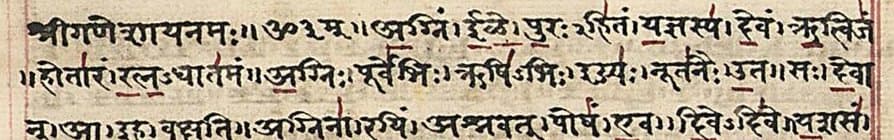 श्रीगणेशायनमः॥ॐ३म्॥अ॒ग्निं।ई॒ळे॒।पु॒रःऽहि॑तं।य॒ज्ञस्य॑।दे॒वं।ऋ॒त्विजं॑
॥होता॑रं।र॒त्न॒ऽधात॑मं॥अ॒ग्निः।पूर्वे॑भिः।ऋषि॑ऽभिः।ईड्यः॑।नूत॑नैः।उ॒त॥सः।दे॒वा
न्।आ।इ॒ह।व॒क्ष॒ति॒॥अ॒ग्निना॑।र॒यिं।अ॒श्न॒व॒त्।पोषं॑।ए॒व॥दि॒वेऽदि॑वे॥य॒शसं॑।